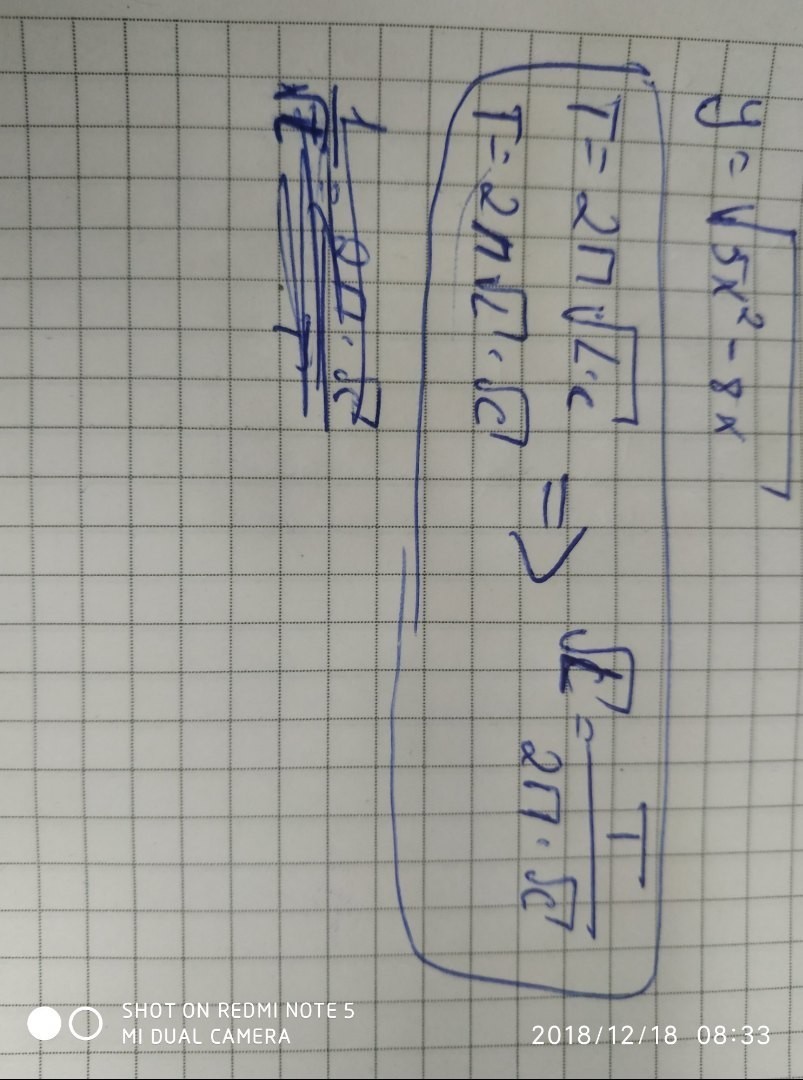 y = √5x² - 8x
T = 2П√L·c
T = 2П√L·√C => √L = T / 2П·√C
1 / √L = 2П·√C / T
SHOT ON REDMI NOTE 5
MI DUAL CAMERA
2018/12/18 08:33